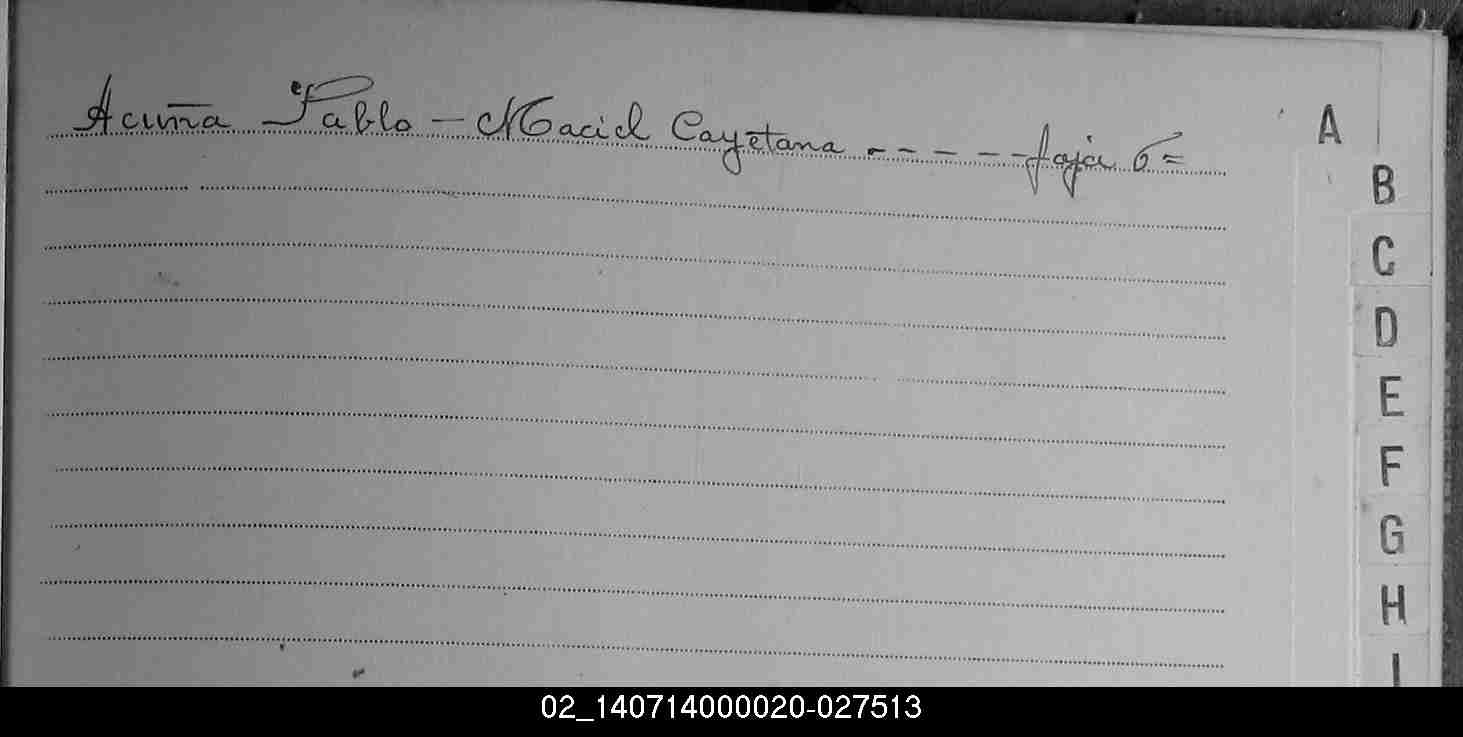 Acuña Pablo - Maciel Cayetana - - - - - foja 6=
A
B
C
D
E
F
G
H
I
02_140714000020-027513